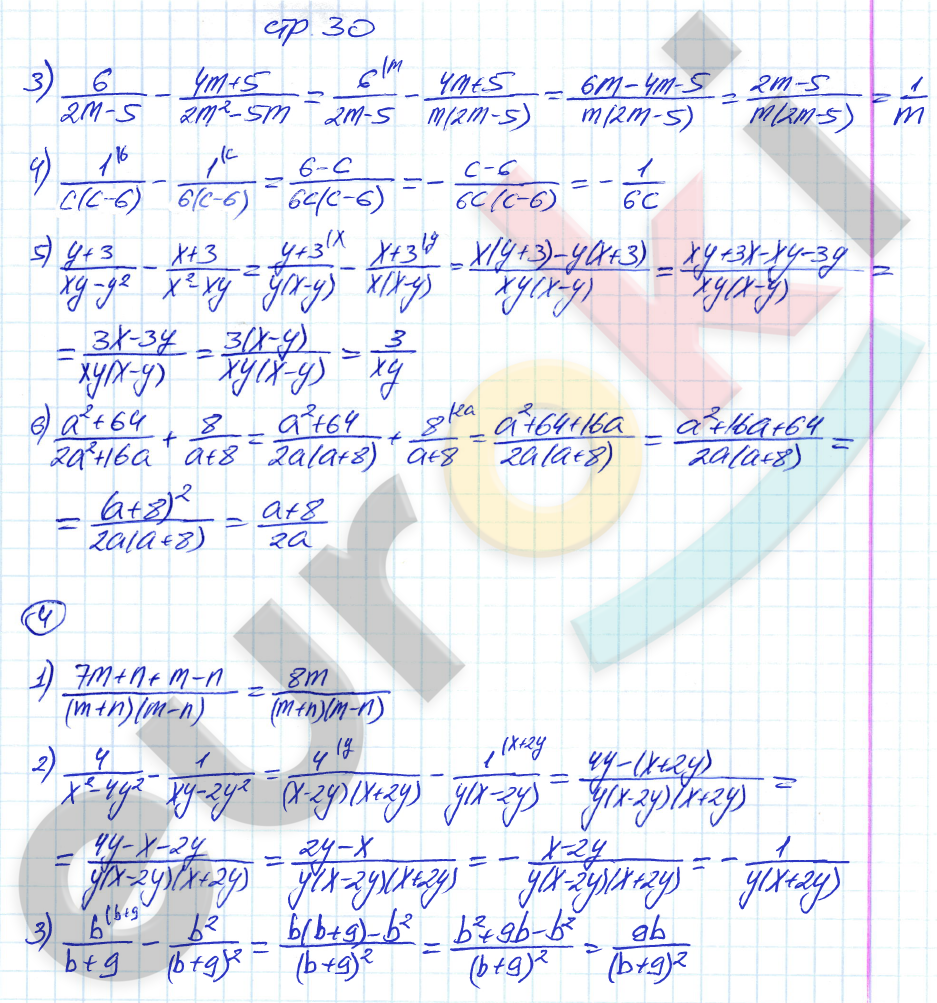 стр. 30
3) 6/(2m-5) - (4m+5)/(2m²-5m) = 6^{(m}/(2m-5) - (4m+5)/(m(2m-5)) = (6m-4m-5)/(m(2m-5)) = (2m-5)/(m(2m-5)) = 1/m
4) 1^{(6}/(c(c-6)) - 1^{(c}/(6(c-6)) = (6-c)/(6c(c-6)) = - (c-6)/(6c(c-6)) = - 1/(6c)
5) (y+3)/(xy-y²) - (x+3)/(x²-xy) = (y+3^{(x})/(y(x-y)) - (x+3^{(y})/(x(x-y)) = (x(y+3)-y(x+3))/(xy(x-y)) = (xy+3x-xy-3y)/(xy(x-y)) =
= (3x-3y)/(xy(x-y)) = (3(x-y))/(xy(x-y)) = 3/(xy)
6) (a²+64)/(2a²+16a) + 8/(a+8) = (a²+64)/(2a(a+8)) + 8^{(2a}/(a+8) = (a²+64+16a)/(2a(a+8)) = (a²+16a+64)/(2a(a+8)) =
= (a+8)²/(2a(a+8)) = (a+8)/(2a)
4
1) (7m+n+m-n)/((m+n)(m-n)) = 8m/((m+n)(m-n))
2) 4/(x²-4y²) - 1/(xy-2y²) = 4^{(y}/((x-2y)(x+2y)) - 1^{(x+2y}/(y(x-2y)) = (4y-(x+2y))/(y(x-2y)(x+2y)) =
= (4y-x-2y)/(y(x-2y)(x+2y)) = (2y-x)/(y(x-2y)(x+2y)) = - (x-2y)/(y(x-2y)(x+2y)) = - 1/(y(x+2y))
3) b^{(b+9}/(b+9) - b²/(b+9)² = (b(b+9)-b²)/(b+9)² = (b²+9b-b²)/(b+9)² = 9b/(b+9)²
euroki